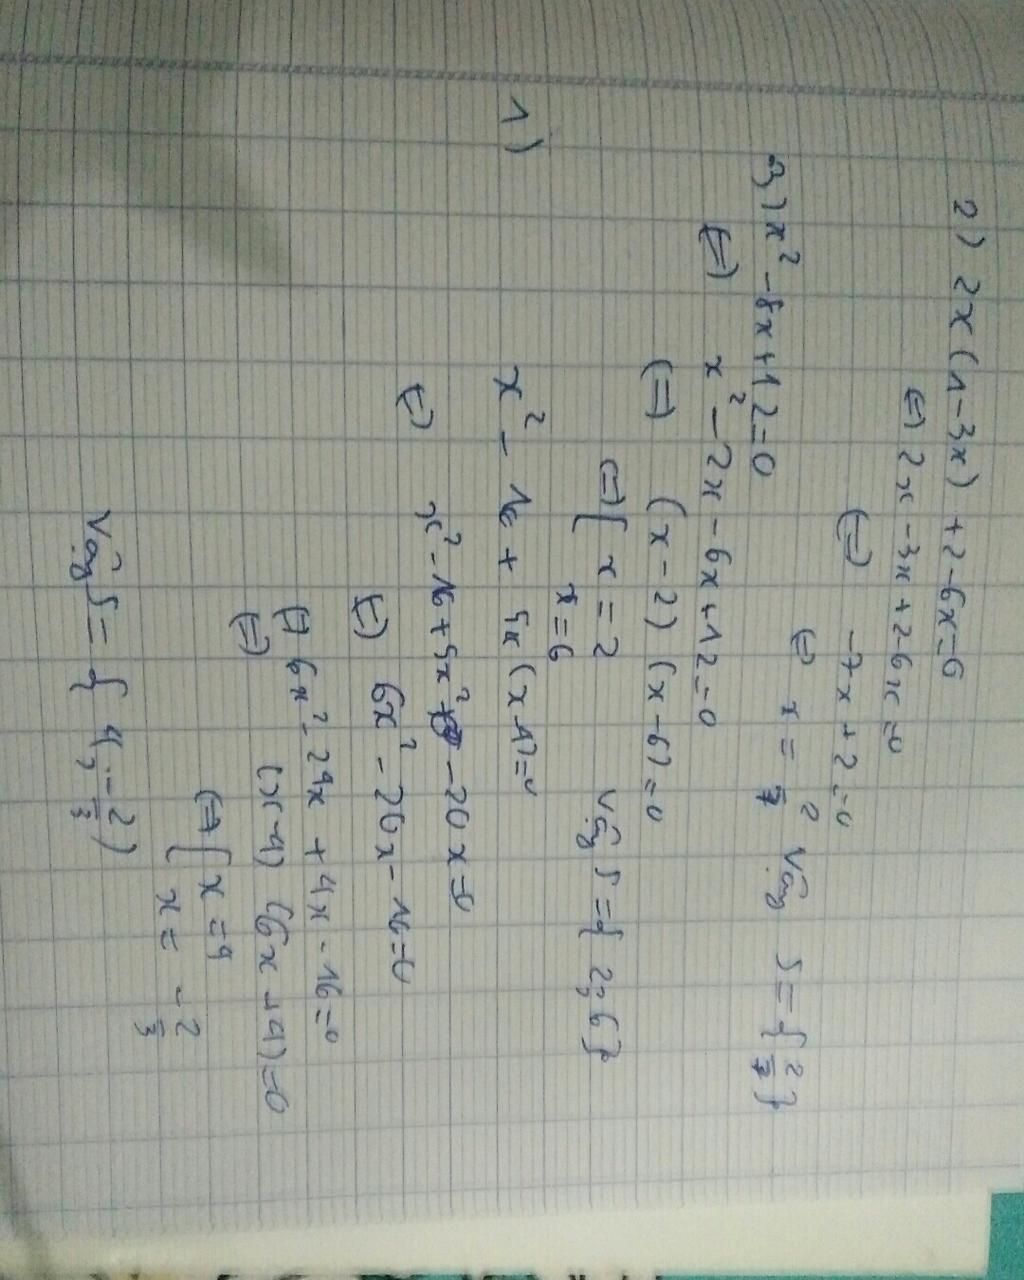 2) 2x(1-3x) + 2-6x=0
(=) 2x -3x + 2-6x =0
(=) -7x + 2 =0
(=) x = 2/7 Vậy S = { 2/7 }
3) x² - 8x + 12 = 0
(=) x² - 2x - 6x + 12 = 0
(=) (x - 2) (x - 6) = 0
(=) [ x = 2 Vậy S = { 2; 6 }
x = 6
1) x² - 16 + 5x (x-4) = 0
(=) x² - 16 + 5x² - 20x = 0
(=) 6x² - 20x - 16 = 0
(=) 6x² - 24x + 4x - 16 = 0
(=) (x-4) (6x + 4) = 0
(=) [ x = 4
x = -2/3
Vậy S = { 4; -2/3 )